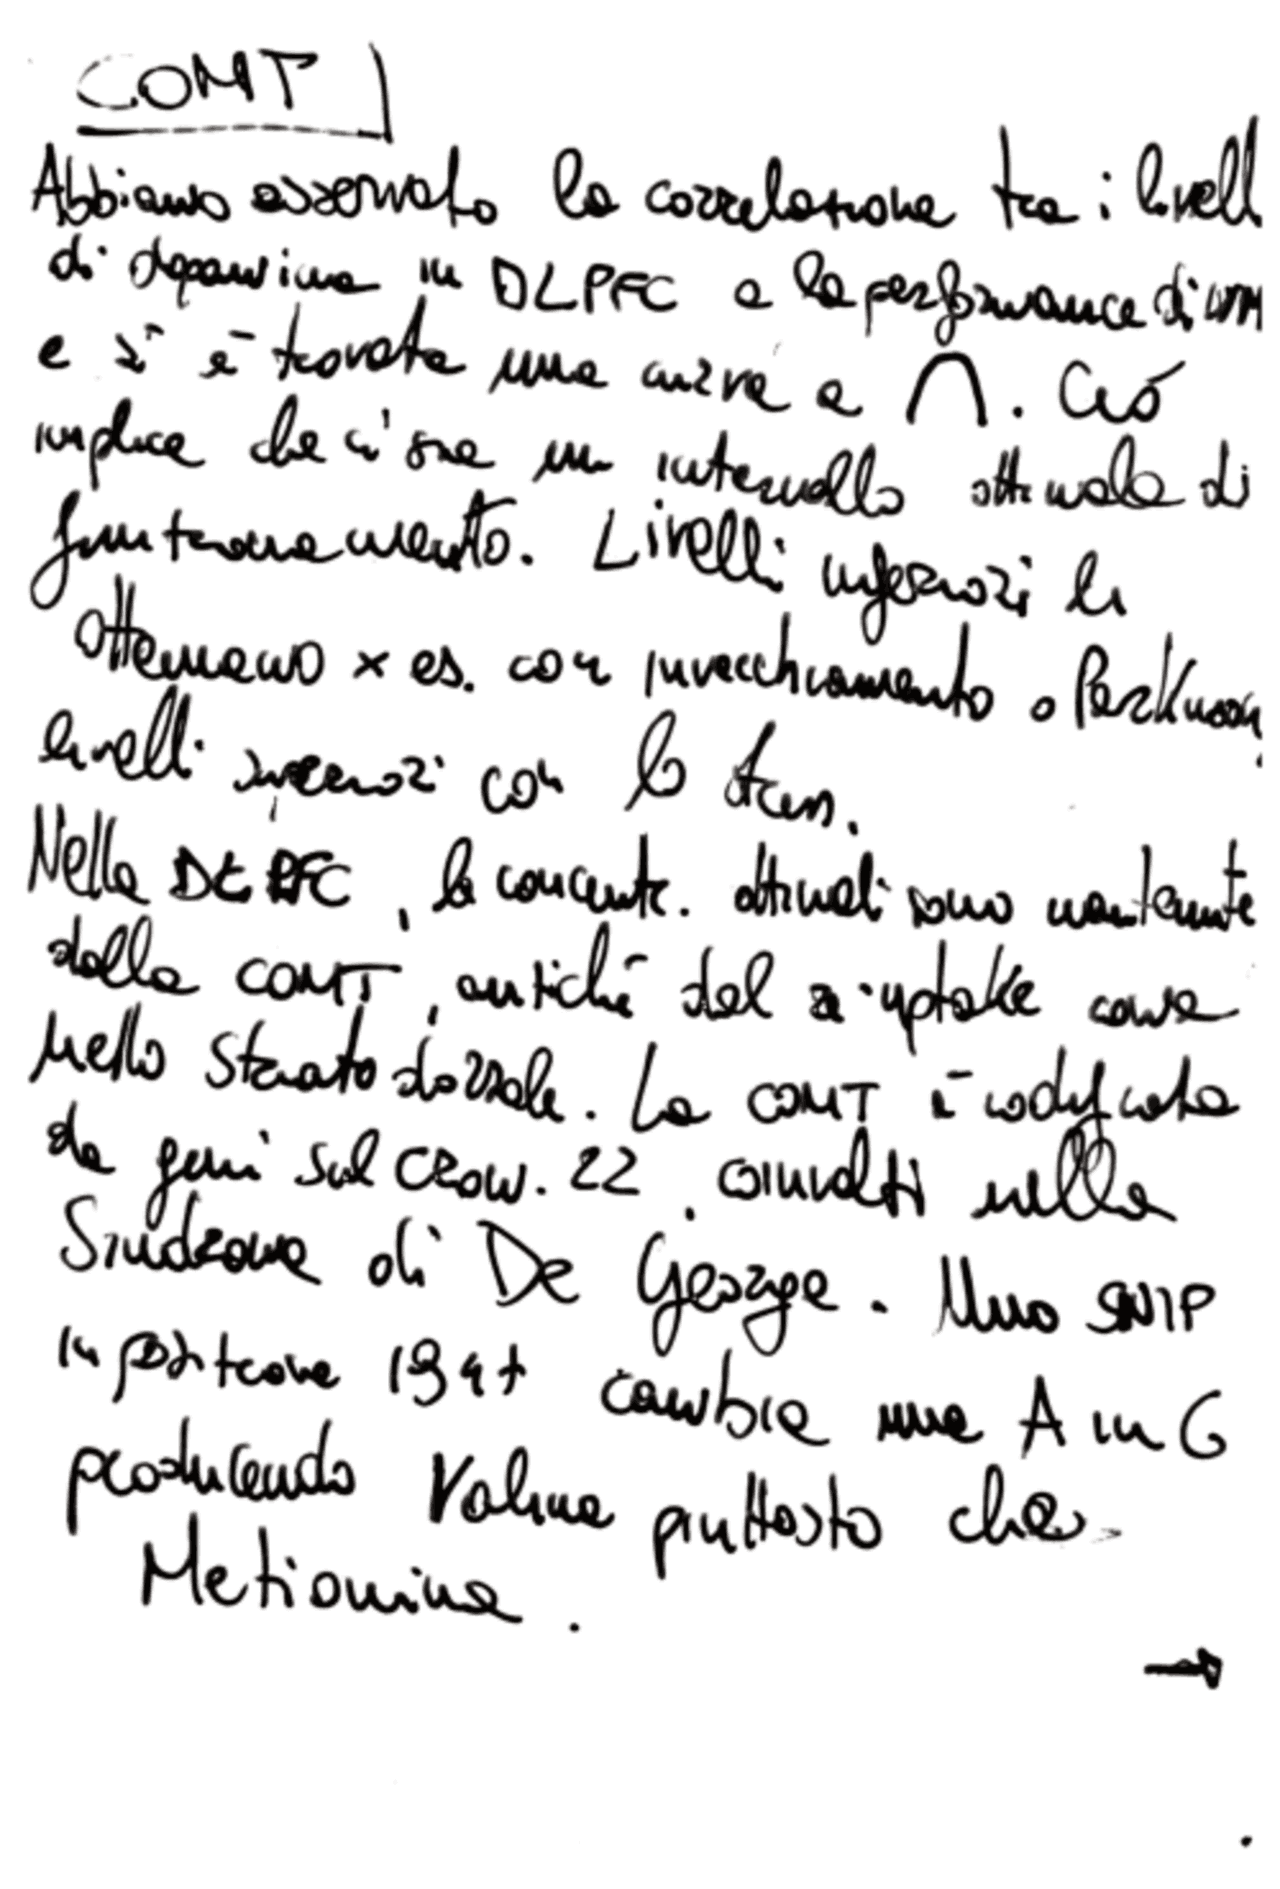 COMT
Abbiamo osservato la correlazione tra i livelli
di dopamina in DLPFC e la performance di WM
e si è trovata una curva a ∩. Ciò
implica che ci sia un intervallo ottimale di
funzionamento. Livelli inferiori li
otteniamo x es. con invecchiamento o Parkinson
livelli superiori con lo stress.
Nella DLPFC, le concentr. ottimali sono mantenute
dalla COMT, anziché del re-uptake come
nello Striato dorsale. La COMT è codificata
da geni sul Crom. 22, coinvolti nella
Sindrome di De George. Uno SNIP
in posizione 1947 cambia una A in G
producendo Valina piuttosto che
Metionina.
→